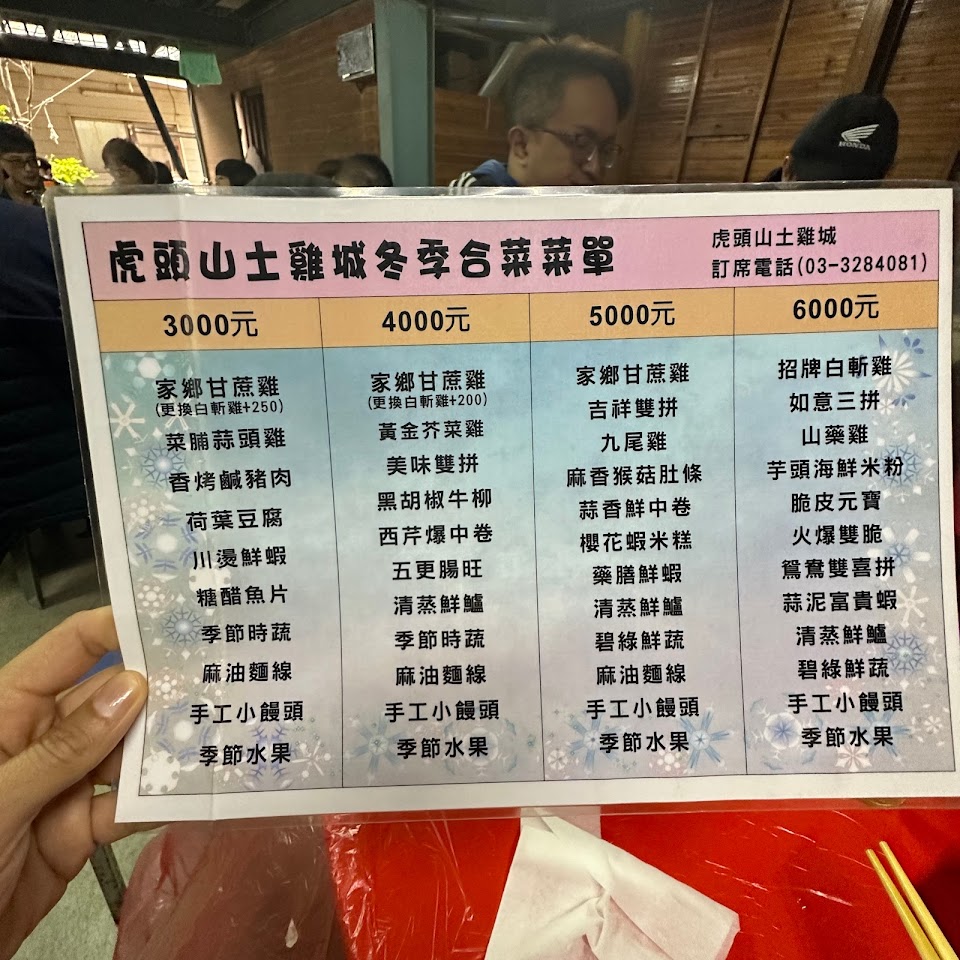 HONDA
虎頭山土雞城冬季合菜菜單
虎頭山土雞城
訂席電話(03-3284081)
3000元
家鄉甘蔗雞
(更換白斬雞+250)
菜脯蒜頭雞
香烤鹹豬肉
荷葉豆腐
川燙鮮蝦
糖醋魚片
季節時蔬
麻油麵線
手工小饅頭
季節水果
4000元
家鄉甘蔗雞
(更換白斬雞+200)
黃金芥菜雞
美味雙拼
黑胡椒牛柳
西芹爆中卷
五更腸旺
清蒸鮮鱸
季節時蔬
麻油麵線
手工小饅頭
季節水果
5000元
家鄉甘蔗雞
吉祥雙拼
九尾雞
麻香猴菇肚條
蒜香鮮中卷
櫻花蝦米糕
藥膳鮮蝦
清蒸鮮鱸
碧綠鮮蔬
麻油麵線
手工小饅頭
季節水果
6000元
招牌白斬雞
如意三拼
山藥雞
芋頭海鮮米粉
脆皮元寶
火爆雙脆
鴛鴦雙喜拼
蒜泥富貴蝦
清蒸鮮鱸
碧綠鮮蔬
手工小饅頭
季節水果